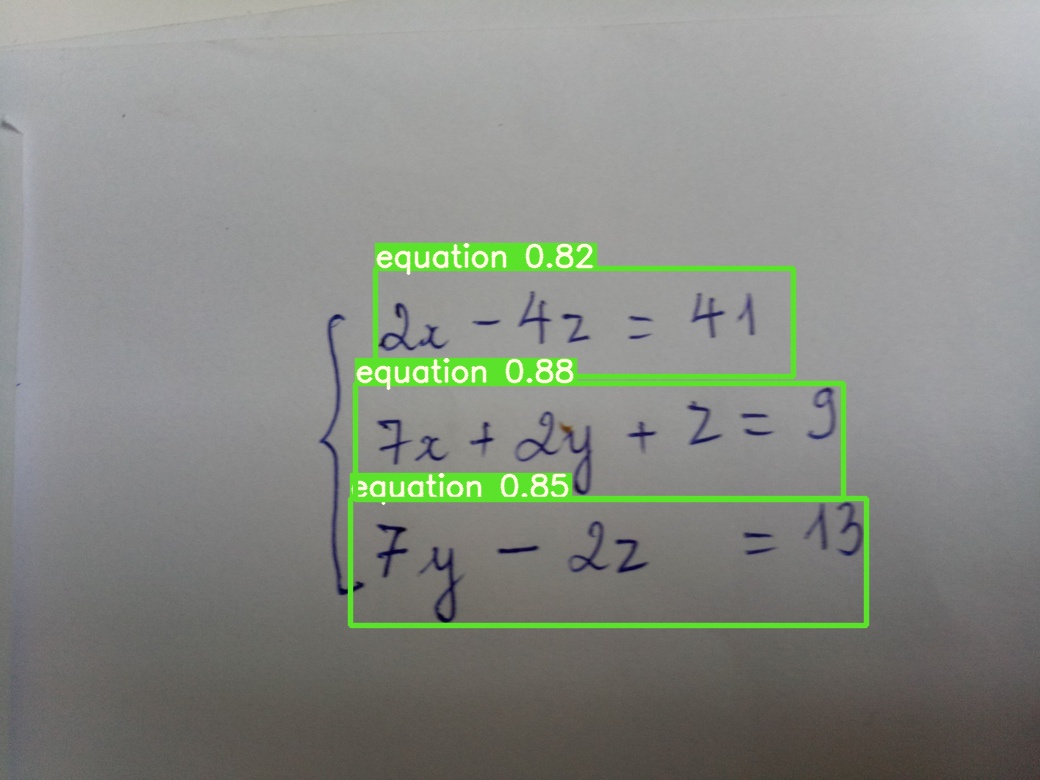 equation 0.82
2x - 4z = 41
equation 0.88
7x + 2y + z = 9
equation 0.85
7y - 2z = 13